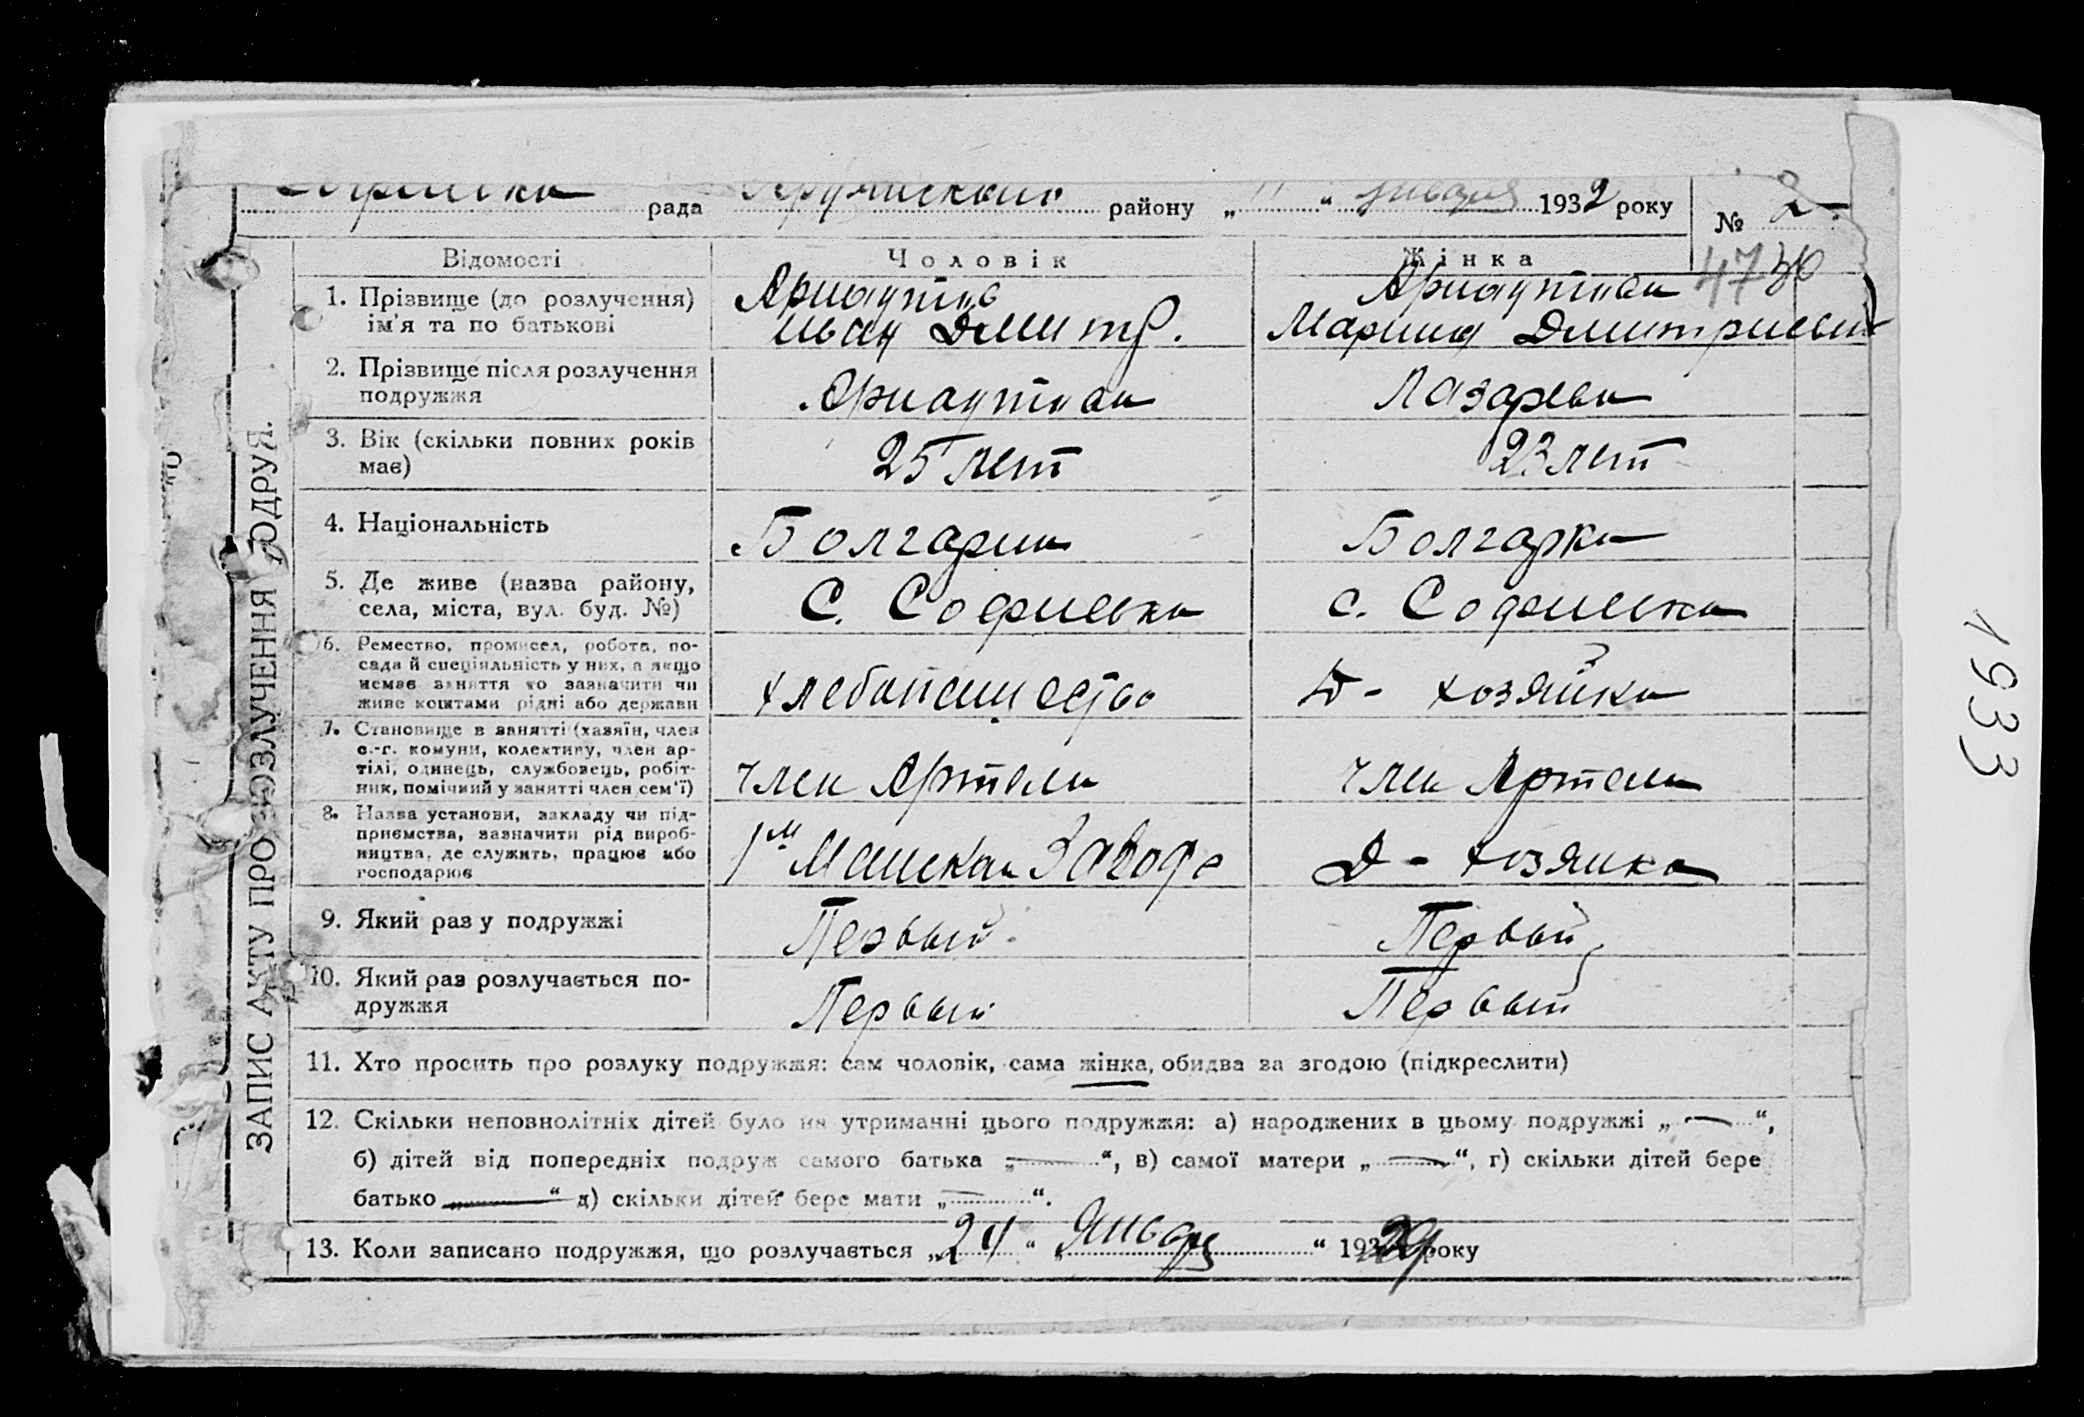 рада району „ 11 “ января 1932 року № 2.
4736
Відомості Чоловік Жінка
1. Прізвище (до розлучення) ім'я та по батькові
Арнаутов
Иван Дмитр.
Арнаутова
Марина Дмитриевна
2. Прізвище після розлучення подружжя
Арнаутова
Лазарева
3. Вік (скільки повних років має)
25 лет
23 лет
4. Національність
Болгарин
Болгарка
5. Де живе (назва району, села, міста, вул. буд. №)
С. Софиевка
с. Софиевка
6. Ремество, промисел, робота, посада й спеціяльність у них, а якщо немає заняття то зазначити чи живе коштами рідні або держави
хлебопашество
Д - хозяйка
7. Становище в занятті (хазяїн, член с.-г. комуни, колективу, член артілі, одинець, службовець, робітник, помічний у занятті член сем'ї)
член Артели
член Артели
8. Назва установи, закладу чи підприємства, зазначити рід виробництва, де служить, працює або господарює
Заводе
Д - хозяйка
9. Який раз у подружжі
Первый
Первый
10. Який раз розлучається подружжя
Первый
Первый
11. Хто просить про розлуку подружжя: сам чоловік, сама жінка, обидва за згодою (підкреслити)
12. Скільки неповнолітніх дітей було на утриманні цього подружжя: а) народжених в цьому подружжі „ — “,
б) дітей від попередніх подруж самого батька „ — “, в) самої матери „ — “, г) скільки дітей бере
батько „ — “ д) скільки дітей бере мати „ — “.
13. Коли записано подружжя, що розлучається „ 24 “ „ Январ “ 1929 року
ЗАПИС АКТУ ПРО РОЗЛУЧЕННЯ ПОДРУЖ.
1933